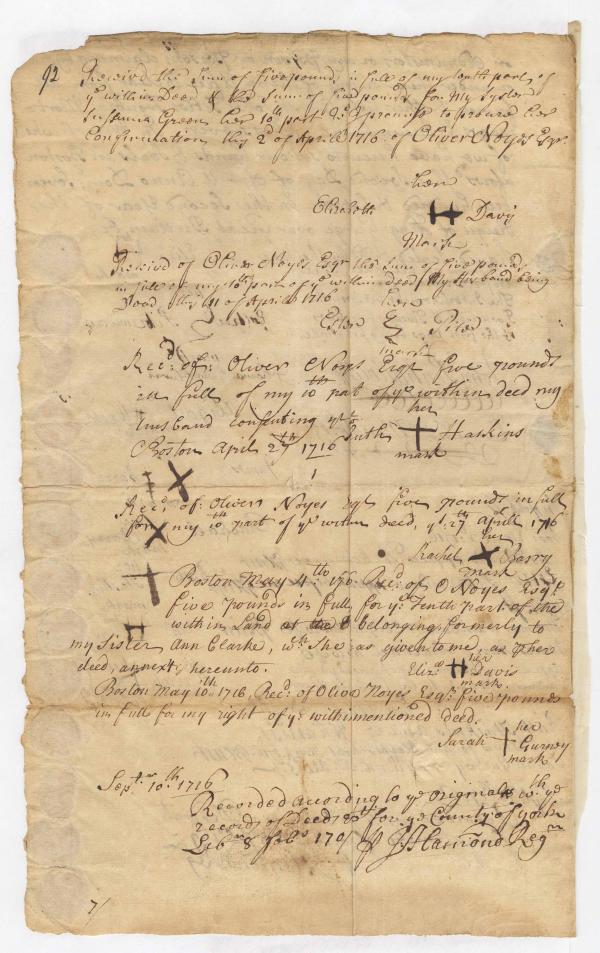 92
Receivd the Sum of five pounds in full of my tenth part of
ye within Deed & the Sum of five pounds for My Syster
Susanna Green her 10th part & I promis to procure her
Confirmation this 2d of April 1716 of Oliver Noyes Esqr
her
Elizabeth H Davis
Mark
Receivd of Oliver Noyes Esqr the Sum of five pounds
in full of my 10th part of ye within deed My Husband being
Dead this 11 of April 1716
her
Ester
mark
Recd of Oliver Noys Esqr five pounds
in full of my 10th part of ye within deed my
Husband consenting yrto
her
Boston April 27th 1716 Ruth + Haskins
mark
Recd of Oliver Noyes Esqr five pounds in full
for my 10th part of ye within deed, yt 27th April 1716
her
Rachel X Barry
mark
Boston May 4th 1716 Recd of O Noyes Esqr
five pounds in full for ye Tenth part of the
within Land at the belonging formerly to
my Sister Ann Clarke, wch She as given to me, as pr her
deed, annext, hereunto.
her
Eliza H Davis
mark.
Boston May 10th 1716, Recd of Olive Noyes Esqr five pounds
in full for my right of ye withinmentioned deed.
her
Sarah + Gurney
mark
Septr 10th 1716
Recorded According to ye Originale wth ye
records of Deeds &c for ye County of yorke
Libr 8 folo 170/ pr J Hamond Regr
7/